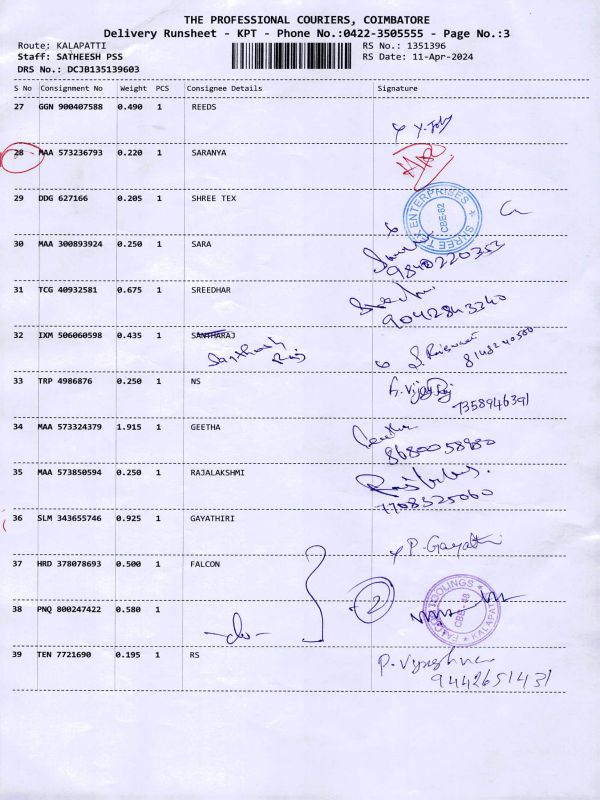 THE PROFESSIONAL COURIERS, COIMBATORE
Delivery Runsheet - KPT - Phone No.:0422-3505555 - Page No.:3
Route: KALAPATTI
Staff: SATHEESH PSS
DRS No.: DCJB135139603
RS No.: 1351396
RS Date: 11-Apr-2024
S No Consignment No Weight PCS Consignee Details Signature
27 GGN 900407588 0.490 1 REEDS
28 MAA 573236793 0.220 1 SARANYA
29 DDG 627166 0.205 1 SHREE TEX
SHREE TEX ENTERPRISES
CBE-62
30 MAA 300893924 0.250 1 SARA
31 TCG 40932581 0.675 1 SREEDHAR
9042843340
32 IXM 506060598 0.435 1 SANTHARAJ
Santhosh Raj
8148240500
33 TRP 4986876 0.250 1 NS
7358946391
34 MAA 573324379 1.915 1 GEETHA
Geetha
8680058980
35 MAA 573850594 0.250 1 RAJALAKSHMI
7708325060
36 SLM 343655746 0.925 1 GAYATHIRI
P. Gayathri
37 HRD 378078693 0.500 1 FALCON
2
38 PNQ 800247422 0.580 1
-do-
39 TEN 7721690 0.195 1 RS
9442651431